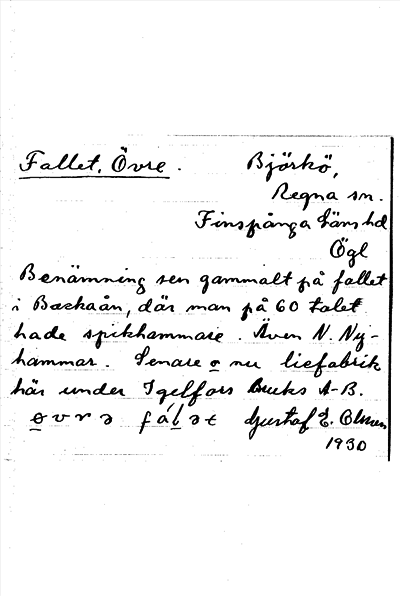 Fallet, Övre.
Björkö,
Regna sn.
Finspånga läns hd
Ögl
Benämning sen gammalt på fallet
i Backaån, där man på 60 talet
hade spikhammare. Även N. Ny-
hammar. Senare o nu liefabrik
här under Igelfors Bruks A-B.
ovrə fálət Gustaf E. Olsson
1930